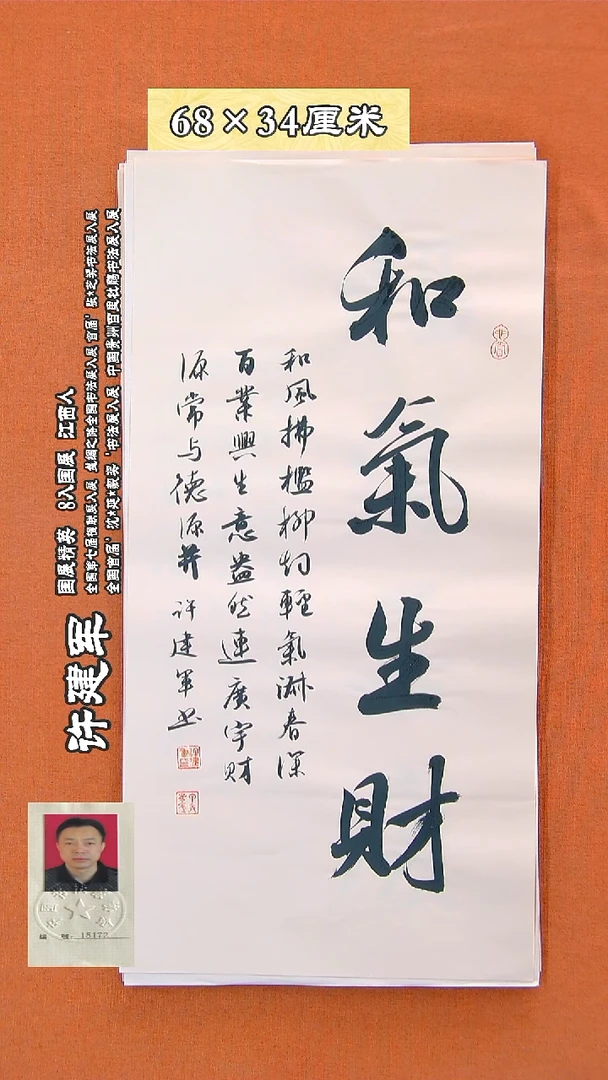 68×34厘米
和氣生財
和風拂檻柳輕氣淋春深
百業興生意盎然連廣宇財
源常与德源并 許建軍书
许建军
国展精英 8入国展 江西人
全国第七届楹联展入展 丝绸之路全国书法展入展 首届'张*芝奖书法展入展
全国首届'沈*延*毅奖'书法展入展 中国贵州百里杜鹃书法展入展
编 号: 15177